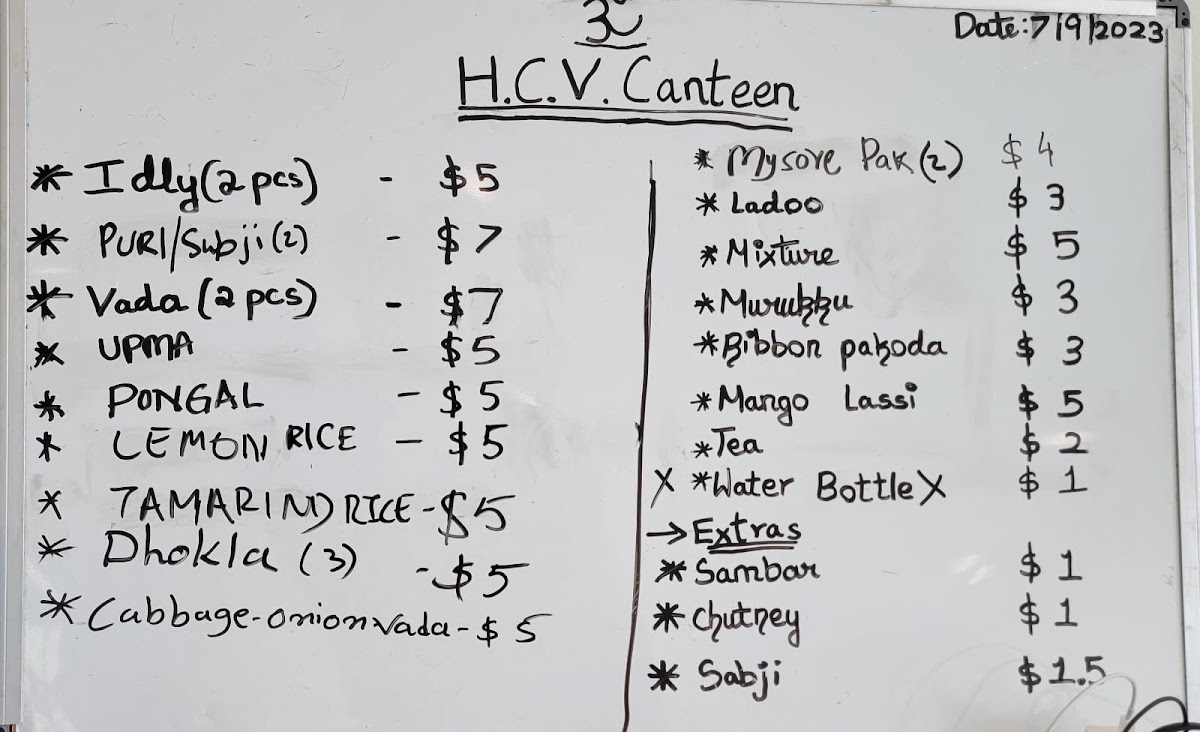 ૐ
Date:7/9/2023
H.C.V. Canteen
* Idly(2 pcs) - $5
* PURI/Subji(2) - $7
* Vada (2 pcs) - $7
* UPMA - $5
* PONGAL - $5
* LEMON RICE - $5
* TAMARIND RICE - $5
* Dhokla (3) - $5
* Cabbage-onion vada - $5
* Mysore Pak(2) $4
* Ladoo $3
* Mixture $5
* Murukku $3
* Ribbon pakoda $3
* Mango Lassi $5
* Tea $2
X * Water Bottle X $1
→ Extras
* Sambar $1
* Chutney $1
* Sabji $1.5